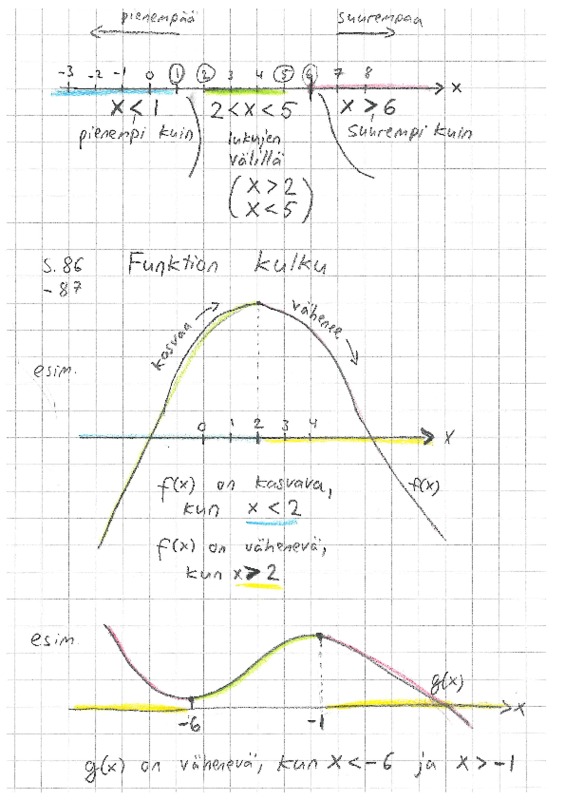 pienempää suurempaa
-3 -2 -1 0 1 2 3 4 5 6 7 8 x
x < 1 2 < x < 5 x > 6
pienempi kuin lukujen välillä suurempi kuin
(x > 2
x < 5)
s. 86 Funktion kulku
- 87
kasvaa vähenee
esim.
0 1 2 3 4 x
f(x) on kasvava, f(x)
kun x < 2
f(x) on vähenevä,
kun x > 2
esim.
g(x)
-6 -1 x
g(x) on vähenevä, kun x < -6 ja x > -1